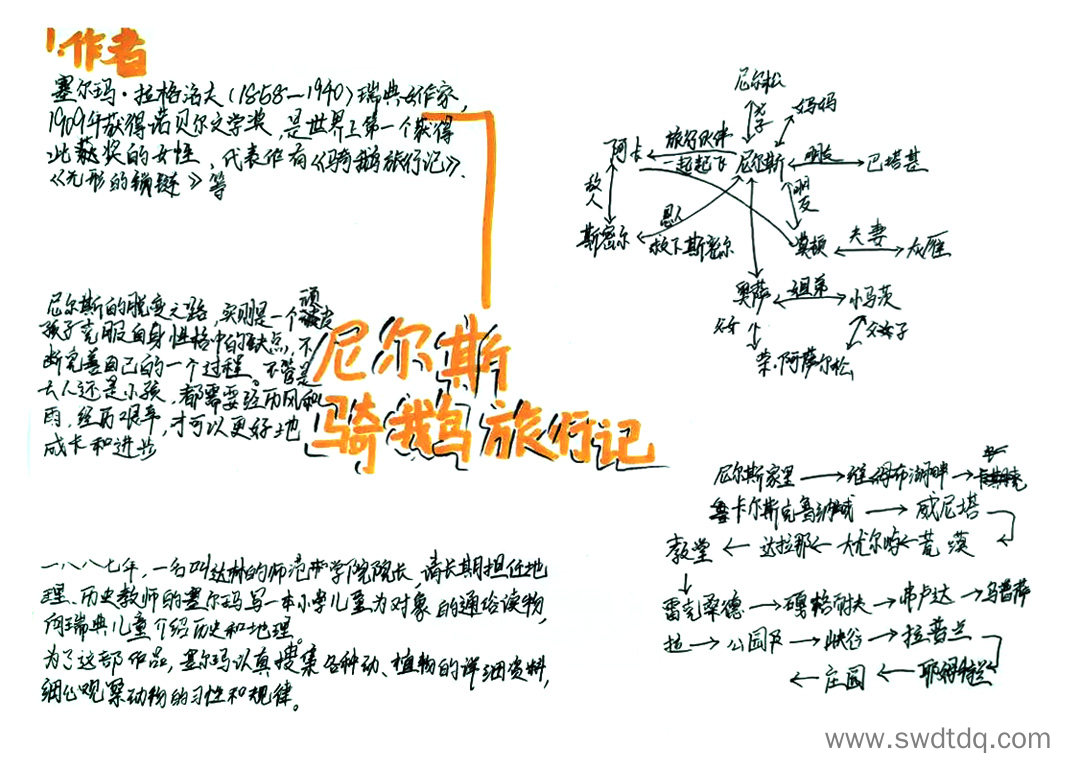 1.作者
塞尔玛·拉格洛夫(1858—1940)瑞典作家,
1909年获得诺贝尔文学奖,是世界上第一个获得
此获奖的女性,代表作有《骑鹅旅行记》.
《无形的锁链》等
尼尔松
父子
妈妈
阿卡
旅行伙伴
一起起飞
尼尔斯
朋友
巴塔基
敌人
恩人
朋友
斯密尔
救下斯密尔
莫顿
夫妻
灰雁
奥萨
姐弟
小马茨
父女
父子
荣·阿萨尔松
尼尔斯的脱变之路,实则是一个顽皮
孩子克服自身性格中的缺点,不
断完善自己的一个过程。不管是
大人还是小孩,都需要经历风和
雨,经历艰辛,才可以更好地
成长和进步
尼尔斯
骑鹅旅行记
尼尔斯家里→维姆布湖畔→
卡尔斯克鲁纳城→威尼塔
教堂←达拉那←大尤尔屿←荒漠
雷克桑德→碍格耐夫→串卢达→乌普萨
拉→公园及→峡谷→拉普兰
←庄园←耶姆特兰
一八八七年,一名叫达林的师范学院院长,请长期担任地
理、历史教师的塞尔玛写一本小学儿童为对象的通俗读物
向瑞典儿童介绍历史和地理。
为了这部作品,塞尔玛认真搜集各种动、植物的详细资料,
细心观察动物的习性和规律。
www.swdtdq.com